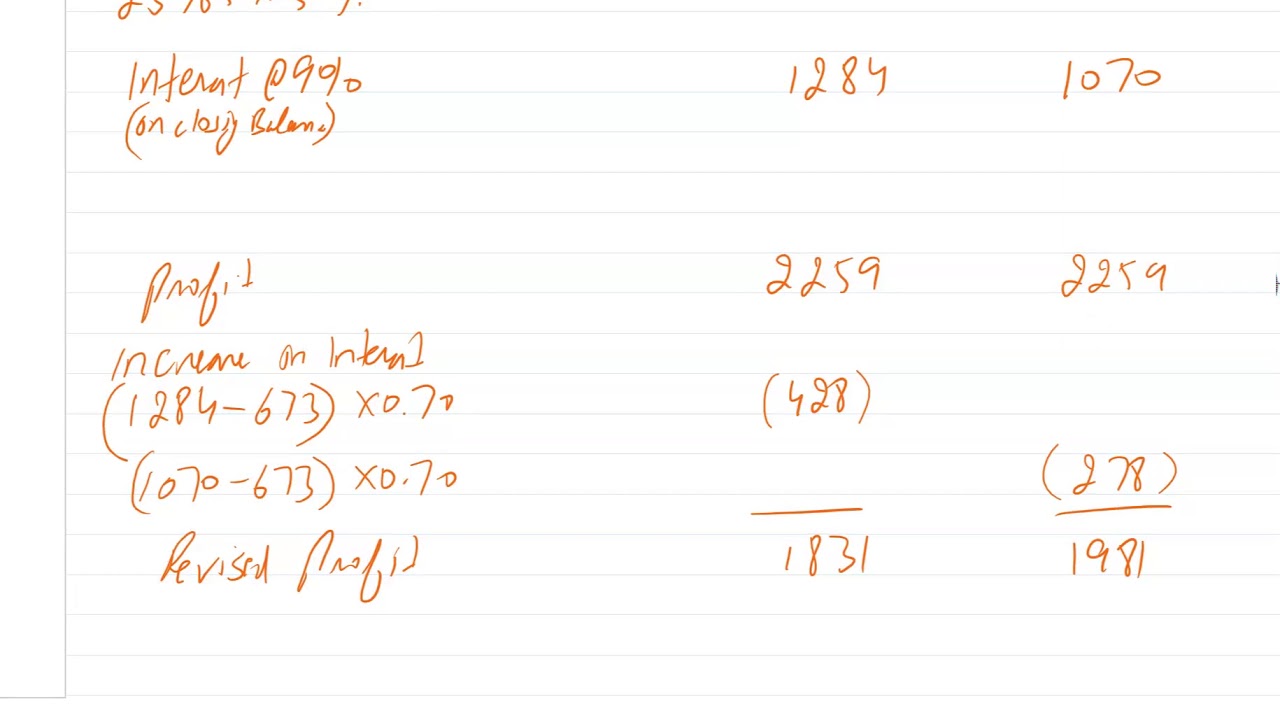 Interest @9% 1284 1070
(on closing Balance)
Profit 2259 2259
Increase on Interest
(1284-673) x0.70 (428)
(1070-673) x0.70 (278)
Revised Profit 1831 1981